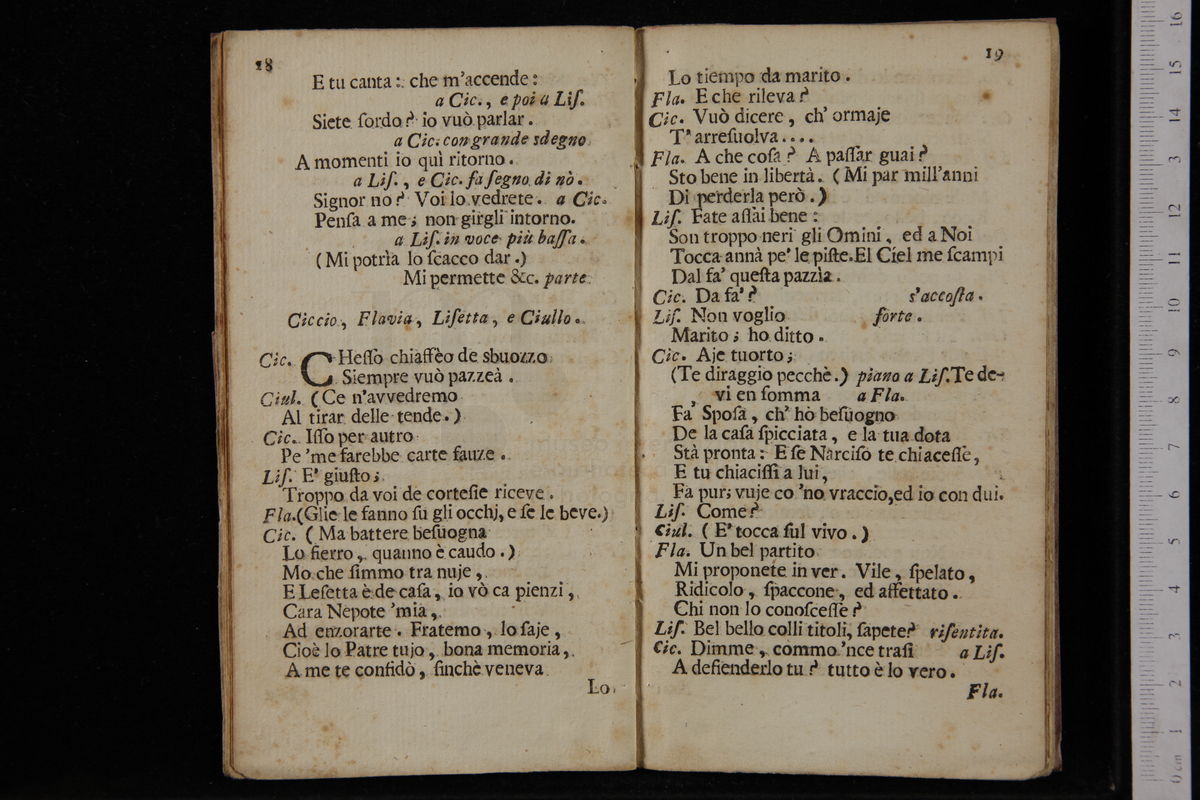 18
E tu canta: che m'accende:
a Cic., e poi a Liſ.
Siete ſordo? io vuò parlar.
a Cic. con grande sdegno
A momenti io quì ritorno.
a Liſ., e Cic. fa ſegno di nò.
Signor no? Voi lo vedrete. a Cic.
Penſa a me; non girgli intorno.
a Liſ. in voce più baſſa.
(Mi potrìa lo ſcacco dar.)
Mi permette &c. parte
Ciccio, Flavia, Liſetta, e Ciullo.
Cic. CHeſſo chiaſſèo de sbuozzo
Siempre vuò pazzeà.
Ciul. (Ce n'avvedremo
Al tirar delle tende.)
Cic. Iſſo per autro
Pe 'me farebbe carte fauze.
Liſ. E' giuſto;
Troppo da voi de corteſie riceve.
Fla.(Glie le fanno ſu gli occhj, e ſe le beve.)
Cic. (Ma battere beſuogna
Lo fierro, quanno è caudo.)
Mo che ſimmo tra nuje,
E Leſetta è de caſa, io vò ca pienzi,
Cara Nepote 'mia,
Ad enzorarte. Fratemo, lo ſaje,
Cioè lo Patre tujo, bona memoria,
A me te confidò, ſinchè veneva
Lo
19
Lo tiempo da marito.
Fla. E che rileva?
Cic. Vuò dicere, ch' ormaje
T' arreſuolva....
Fla. A che coſa? A paſſar guai?
Sto bene in libertà. (Mi par mill'anni
Di perderla però.)
Liſ. Fate aſſai bene:
Son troppo neri gli Omini, ed a Noi
Tocca annà pe' le piſte. El Ciel me ſcampi
Dal fa' queſta pazzìa.
Cic. Da fa'? s'accoſta.
Liſ. Non voglio forte.
Marito; ho ditto.
Cic. Aje tuorto;
(Te diraggio pecchè.) piano a Liſ. Te de-
vi en ſomma a Fla.
Fa' Spoſa, ch' hò beſuogno
De la caſa ſpicciata, e la tua dota
Stà pronta: E ſe Narciſo te chiaceſſe,
E tu chiaciſſi a lui,
Fa pur; vuje co 'no vraccio, ed io con dui.
Liſ. Come?
Ciul. (E' tocca ſul vivo.)
Fla. Un bel partito
Mi proponete in ver. Vile, ſpelato,
Ridicolo, ſpaccone, ed affettato.
Chi non lo conoſceſſe?
Liſ. Bel bello colli titoli, ſapete? riſentita.
Cic. Dimme, commo 'nce traſi a Liſ.
A defienderlo tu? tutto è lo vero.
Fla.
0 cm 1 2 3 4 5 6 7 8 9 10 11 12 13 14 15 16